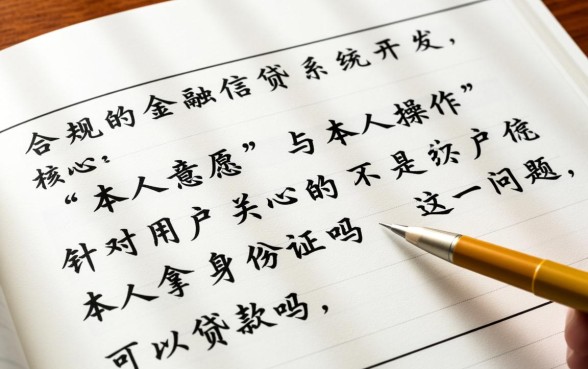 合规的金融信贷系统开发，
核心：
“本人意愿”与本人操作”
针对用户关心的不是 户信
本人拿身份证吗 这一问题，
可以贷款吗，